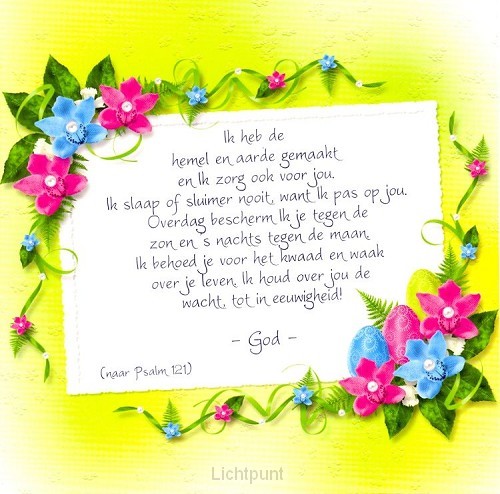 Ik heb de
hemel en aarde gemaakt
en Ik zorg ook voor jou.
Ik slaap of sluimer nooit, want Ik pas op jou.
Overdag bescherm Ik je tegen de
zon en s nachts tegen de maan.
Ik behoed je voor het kwaad en waak
over je leven. Ik houd over jou de
wacht, tot in eeuwigheid!
- God -
(naar Psalm 121)
Lichtpunt